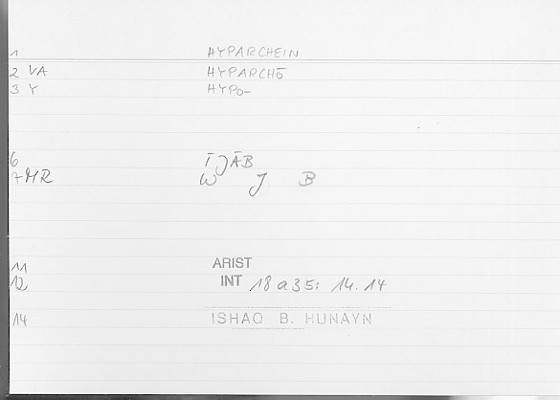 1 HYPARCHEIN
2 VA HYPARCHŌ
3 Y HYPO-
6 ĪJĀB
7 MR W J B
11 ARIST
12 INT 18 a 35: 14.14
14 ISHAQ B. HUNAYN